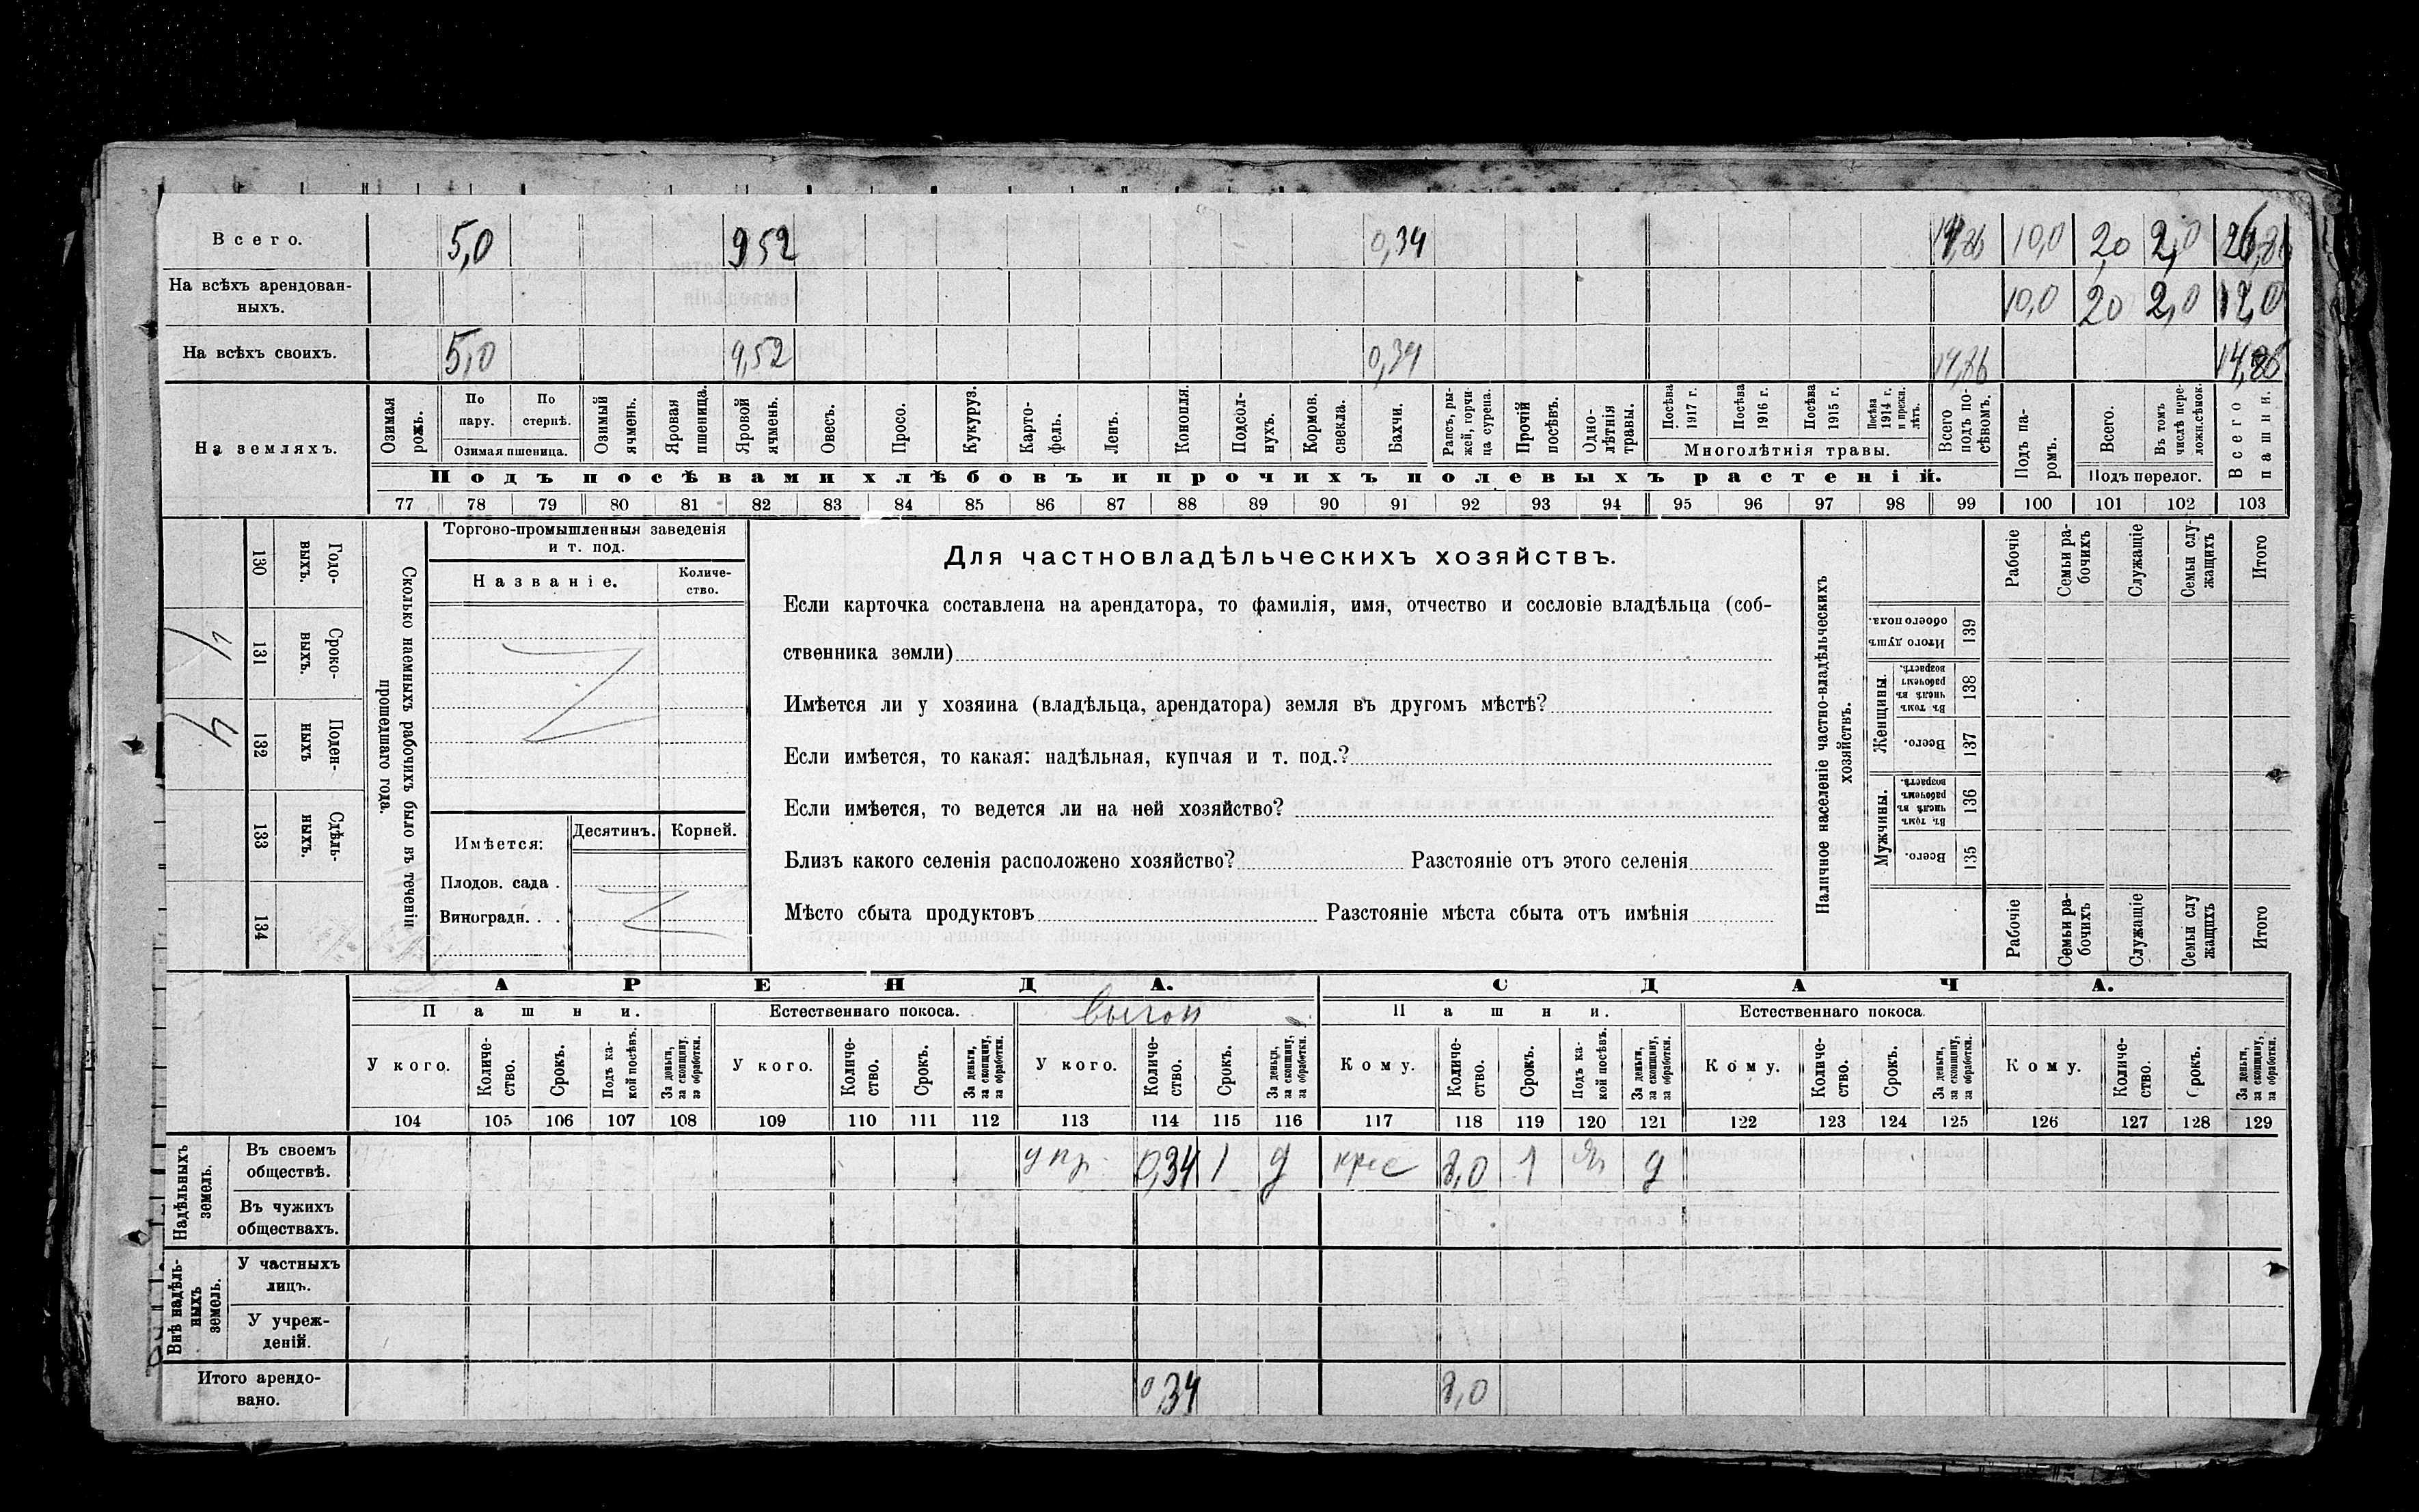 Всего. 5,0 9,52 0,34 14,86 10,0 2,0 2,0 26,86
На всѣхъ арендован-
ныхъ. 10,0 20 2,0 12,0
На всѣхъ своихъ. 5,0 9,52 0,34 14,86 14,86
На земляхъ.
Озимая рожь.
По пару.
По стернѣ.
Озимая пшеница.
Озимый ячмень.
Яровая пшеница.
Яровой ячмень.
Овесъ.
Просо.
Кукуруз.
Карто-
фель.
Ленъ.
Конопля.
Подсол-
нухъ.
Кормов.
свекла.
Бахчи.
Рапсъ, ры-
жей, горчи-
ца сурепа.
Прочій
посѣвъ.
Одно-
лѣтнія
травы.
Посѣва
1917 г.
Посѣва
1916 г.
Посѣва
1915 г.
Посѣва
1914 г.
и прежн.
лѣтъ.
Многолѣтнія травы.
Всего
подъ по-
сѣвомъ.
Подъ па-
ромъ.
Всего.
Въ томъ
числѣ пере-
ложн.сѣнок.
Подъ перелог.
Всего
пашни.
Подъ посѣвами хлѣбовъ и прочихъ полевыхъ растеній.
77 78 79 80 81 82 83 84 85 86 87 88 89 90 91 92 93 94 95 96 97 98 99 100 101 102 103
Сколько наемныхъ рабочихъ было въ теченіи
прошедшаго года.
Годо-
выхъ.
130
Сроко-
выхъ.
131
Поден-
ныхъ
132
Сдѣль-
ныхъ.
133
134
Торгово-промышленныя заведенія
и т. под.
Названіе.
Количе-
ство.
Имѣется:
Десятинъ.
Корней.
Плодов. сада .
Виноградн. . .
Для частновладѣльческихъ хозяйствъ.
Если карточка составлена на арендатора, то фамилія, имя, отчество и сословіе владѣльца (соб-
ственника земли)
Имѣется ли у хозяина (владѣльца, арендатора) земля въ другомъ мѣстѣ?
Если имѣется, то какая: надѣльная, купчая и т. под.?
Если имѣется, то ведется ли на ней хозяйство?
Близъ какого селенія расположено хозяйство? Разстояніе отъ этого селенія
Мѣсто сбыта продуктовъ Разстояніе мѣста сбыта отъ имѣнія
Наличное населеніе частно-владѣльческихъ
хозяйствъ.
Рабочіе
Семьи ра-
бочихъ
Служащіе
Семьи слу-
жащихъ
Итого
Итого душъ
обоего пола.
139
Женщины.
Въ томъ
числѣ въ
рабочемъ
возрастѣ.
138
Всего.
137
Мужчины.
Въ томъ
числѣ въ
рабочемъ
возрастѣ.
136
Всего.
135
Рабочіе
Семьи ра-
бочихъ
Служащіе
Семьи слу
жащихъ
Итого
АРЕНДА.
СДАЧА.
Пашни.
Естественнаго покоса.
выгон
Пашни.
Естественнаго покоса.
У кого.
Количе-
ство.
Срокъ.
Подъ ка-
кой посѣвъ.
За деньги,
за скопщину,
за обработки.
У кого.
Количе-
ство.
Срокъ.
За деньги,
за скопщину,
за обработки.
У кого.
Количе-
ство.
Срокъ.
За деньги,
за скопщину,
за обработки.
Кому.
Количе-
ство.
Срокъ.
Подъ ка-
кой посѣвъ.
За деньги,
за скопщину,
за обработки.
Кому.
Количе-
ство.
Срокъ.
За деньги,
за скопщину,
за обработки.
Кому.
Количе-
ство.
Срокъ.
За деньги,
за скопщину,
за обработки.
104 105 106 107 108 109 110 111 112 113 114 115 116 117 118 119 120 121 122 123 124 125 126 127 128 129
Надѣльныхъ
земель.
Въ своемъ
обществѣ. 0,34 1 д крес 8,0 1 д
Въ чужихъ
обществахъ.
Внѣ надѣль-
ныхъ
земель.
У частныхъ
лицъ.
У учреж-
деній.
Итого арендо-
вано. 0,34 8,0